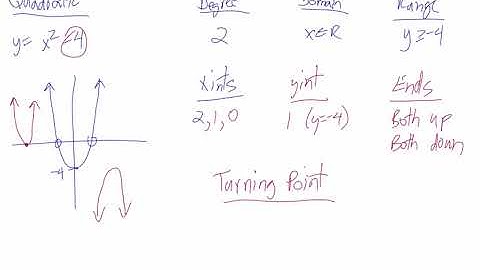 Quadratic Degree Domain Range
y = x² - 4 2 x∈R y≥-4
xints yint Ends
2,1,0 1 (y=-4) Both up
Both down
-4
Turning Point